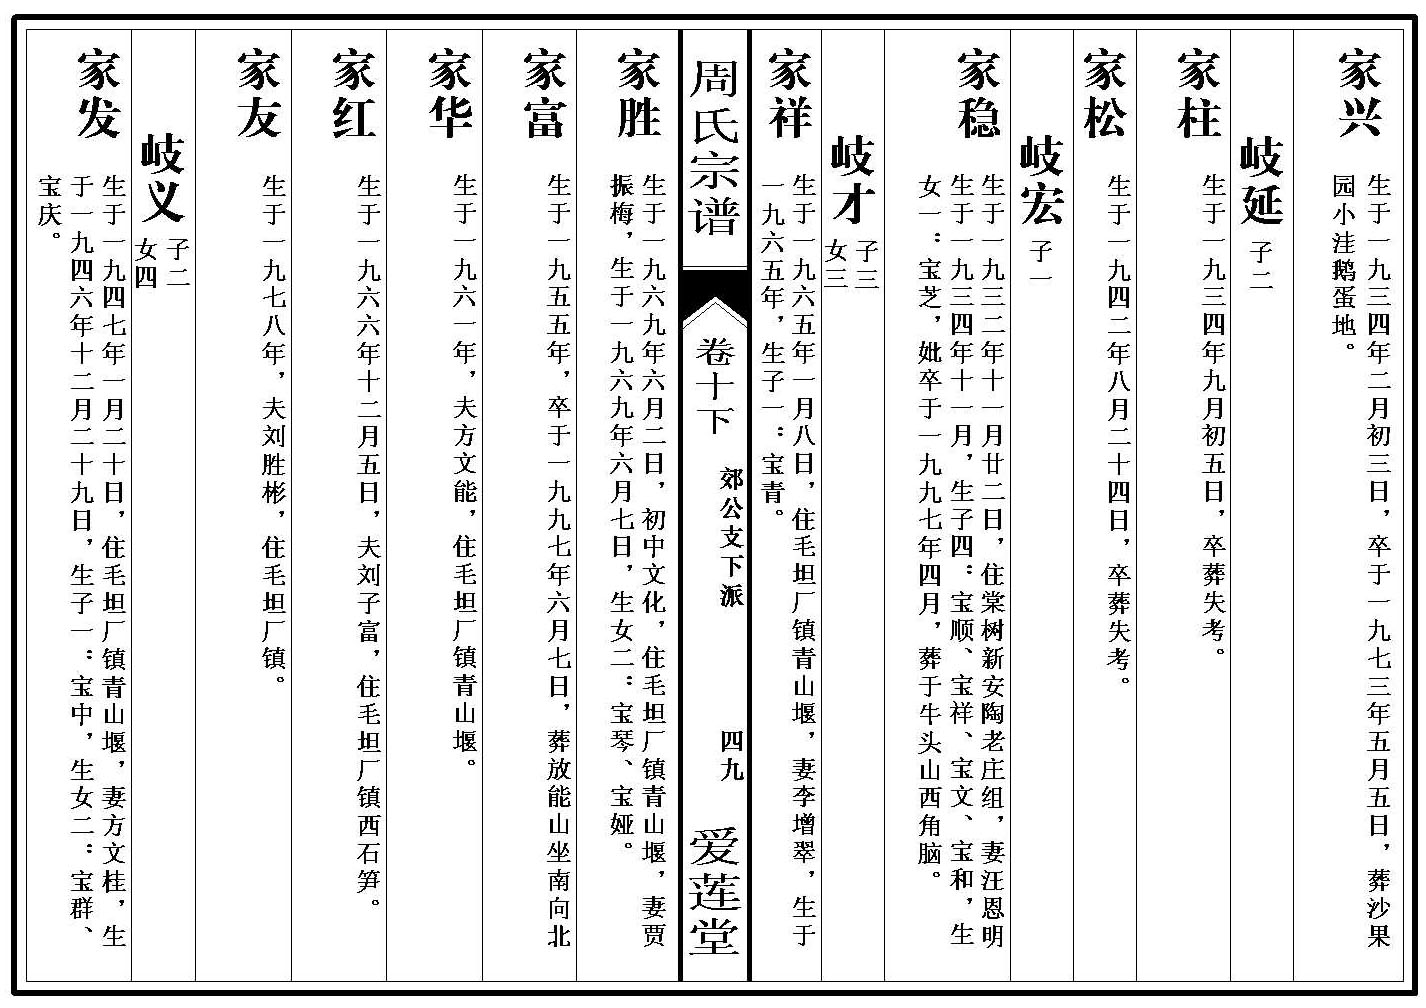 家兴
生于一九三四年二月初三日，卒于一九七三年五月五日，葬沙果
园小洼鹅蛋地。
岐延
子二
家柱
生于一九三四年九月初五日，卒葬失考。
家松
生于一九四二年八月二十四日，卒葬失考。
岐宏
子一
家稳
生于一九三二年十一月廿二日，住棠树新安陶老庄组，妻汪恩明
生于一九三四年十一月，生子四：宝顺、宝祥、宝文、宝和，生
女一：宝芝，妣卒于一九九七年四月，葬于牛头山西角脑。
岐才
子三
女三
家祥
生于一九六五年一月八日，住毛坦厂镇青山堰，妻李增翠，生于
一九六五年，生子一：宝青。
周氏宗谱
卷十下
郊公支下派
四九
爱莲堂
家胜
生于一九六九年六月二日，初中文化，住毛坦厂镇青山堰，妻贾
振梅，生于一九六九年六月七日，生女二：宝琴、宝娅。
家富
生于一九五五年，卒于一九九七年六月七日，葬放能山坐南向北
家华
生于一九六一年，夫方文能，住毛坦厂镇青山堰。
家红
生于一九六六年十二月五日，夫刘子富，住毛坦厂镇西石笋。
家友
生于一九七八年，夫刘胜彬，住毛坦厂镇。
岐义
子二
女四
家发
生于一九四七年一月二十日，住毛坦厂镇青山堰，妻方文桂，生
于一九四六年十二月二十九日，生子一：宝中，生女二：宝群、
宝庆。